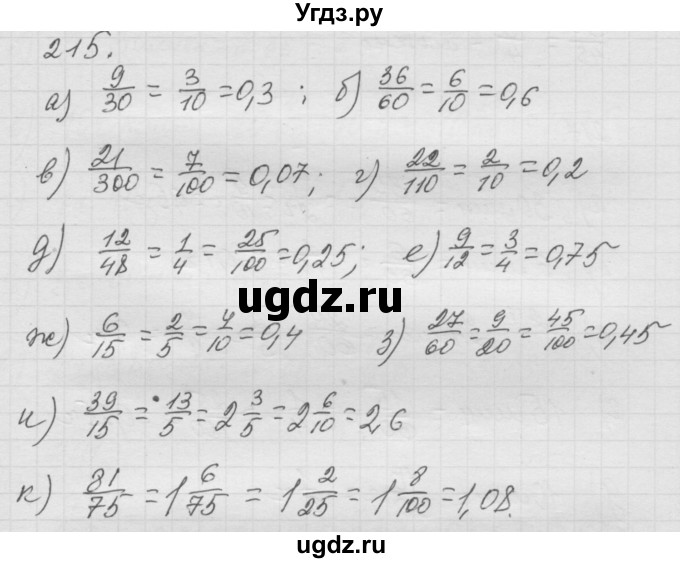 Угдз.ру
215.
а) 9/30 = 3/10 = 0,3 ; б) 36/60 = 6/10 = 0,6
в) 21/300 = 7/100 = 0,07; г) 22/110 = 2/10 = 0,2
д) 12/48 = 1/4 = 25/100 = 0,25; е) 9/12 = 3/4 = 0,75
ugdz.ru
ж) 6/15 = 2/5 = 4/10 = 0,4 з) 27/60 = 9/20 = 45/100 = 0,45
и) 39/15 = 13/5 = 2 3/5 = 2 6/10 = 2,6
к) 81/75 = 1 6/75 = 1 2/25 = 1 8/100 = 1,08.
ugdz.ru